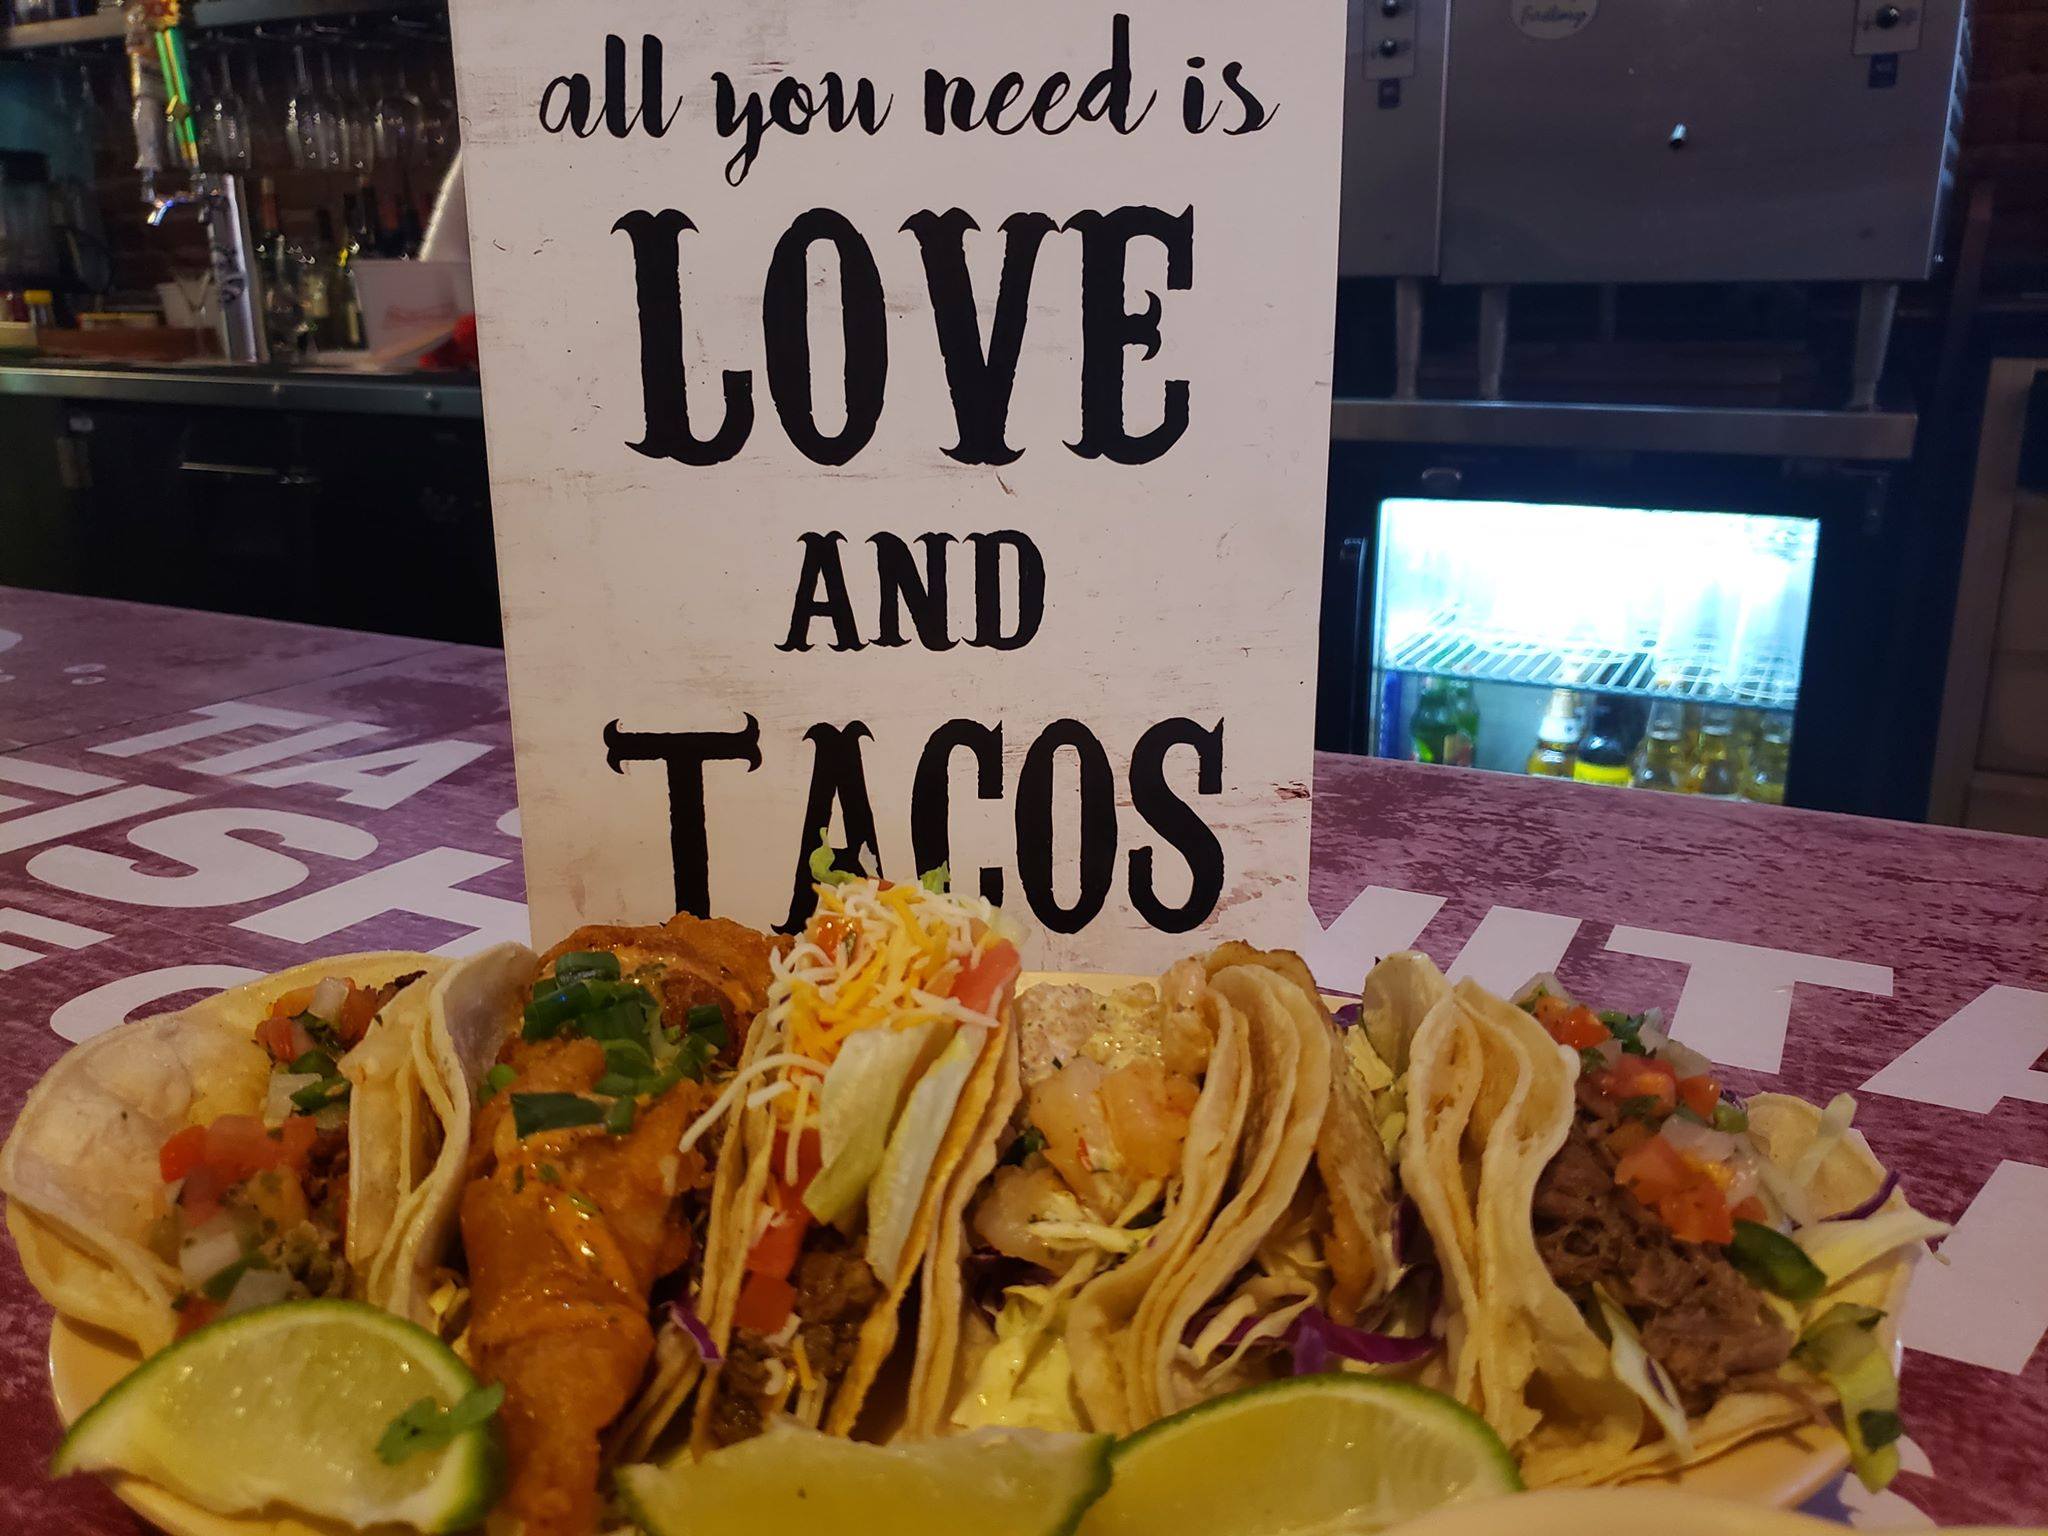 all you need is
LOVE
AND
TACOS
TIA